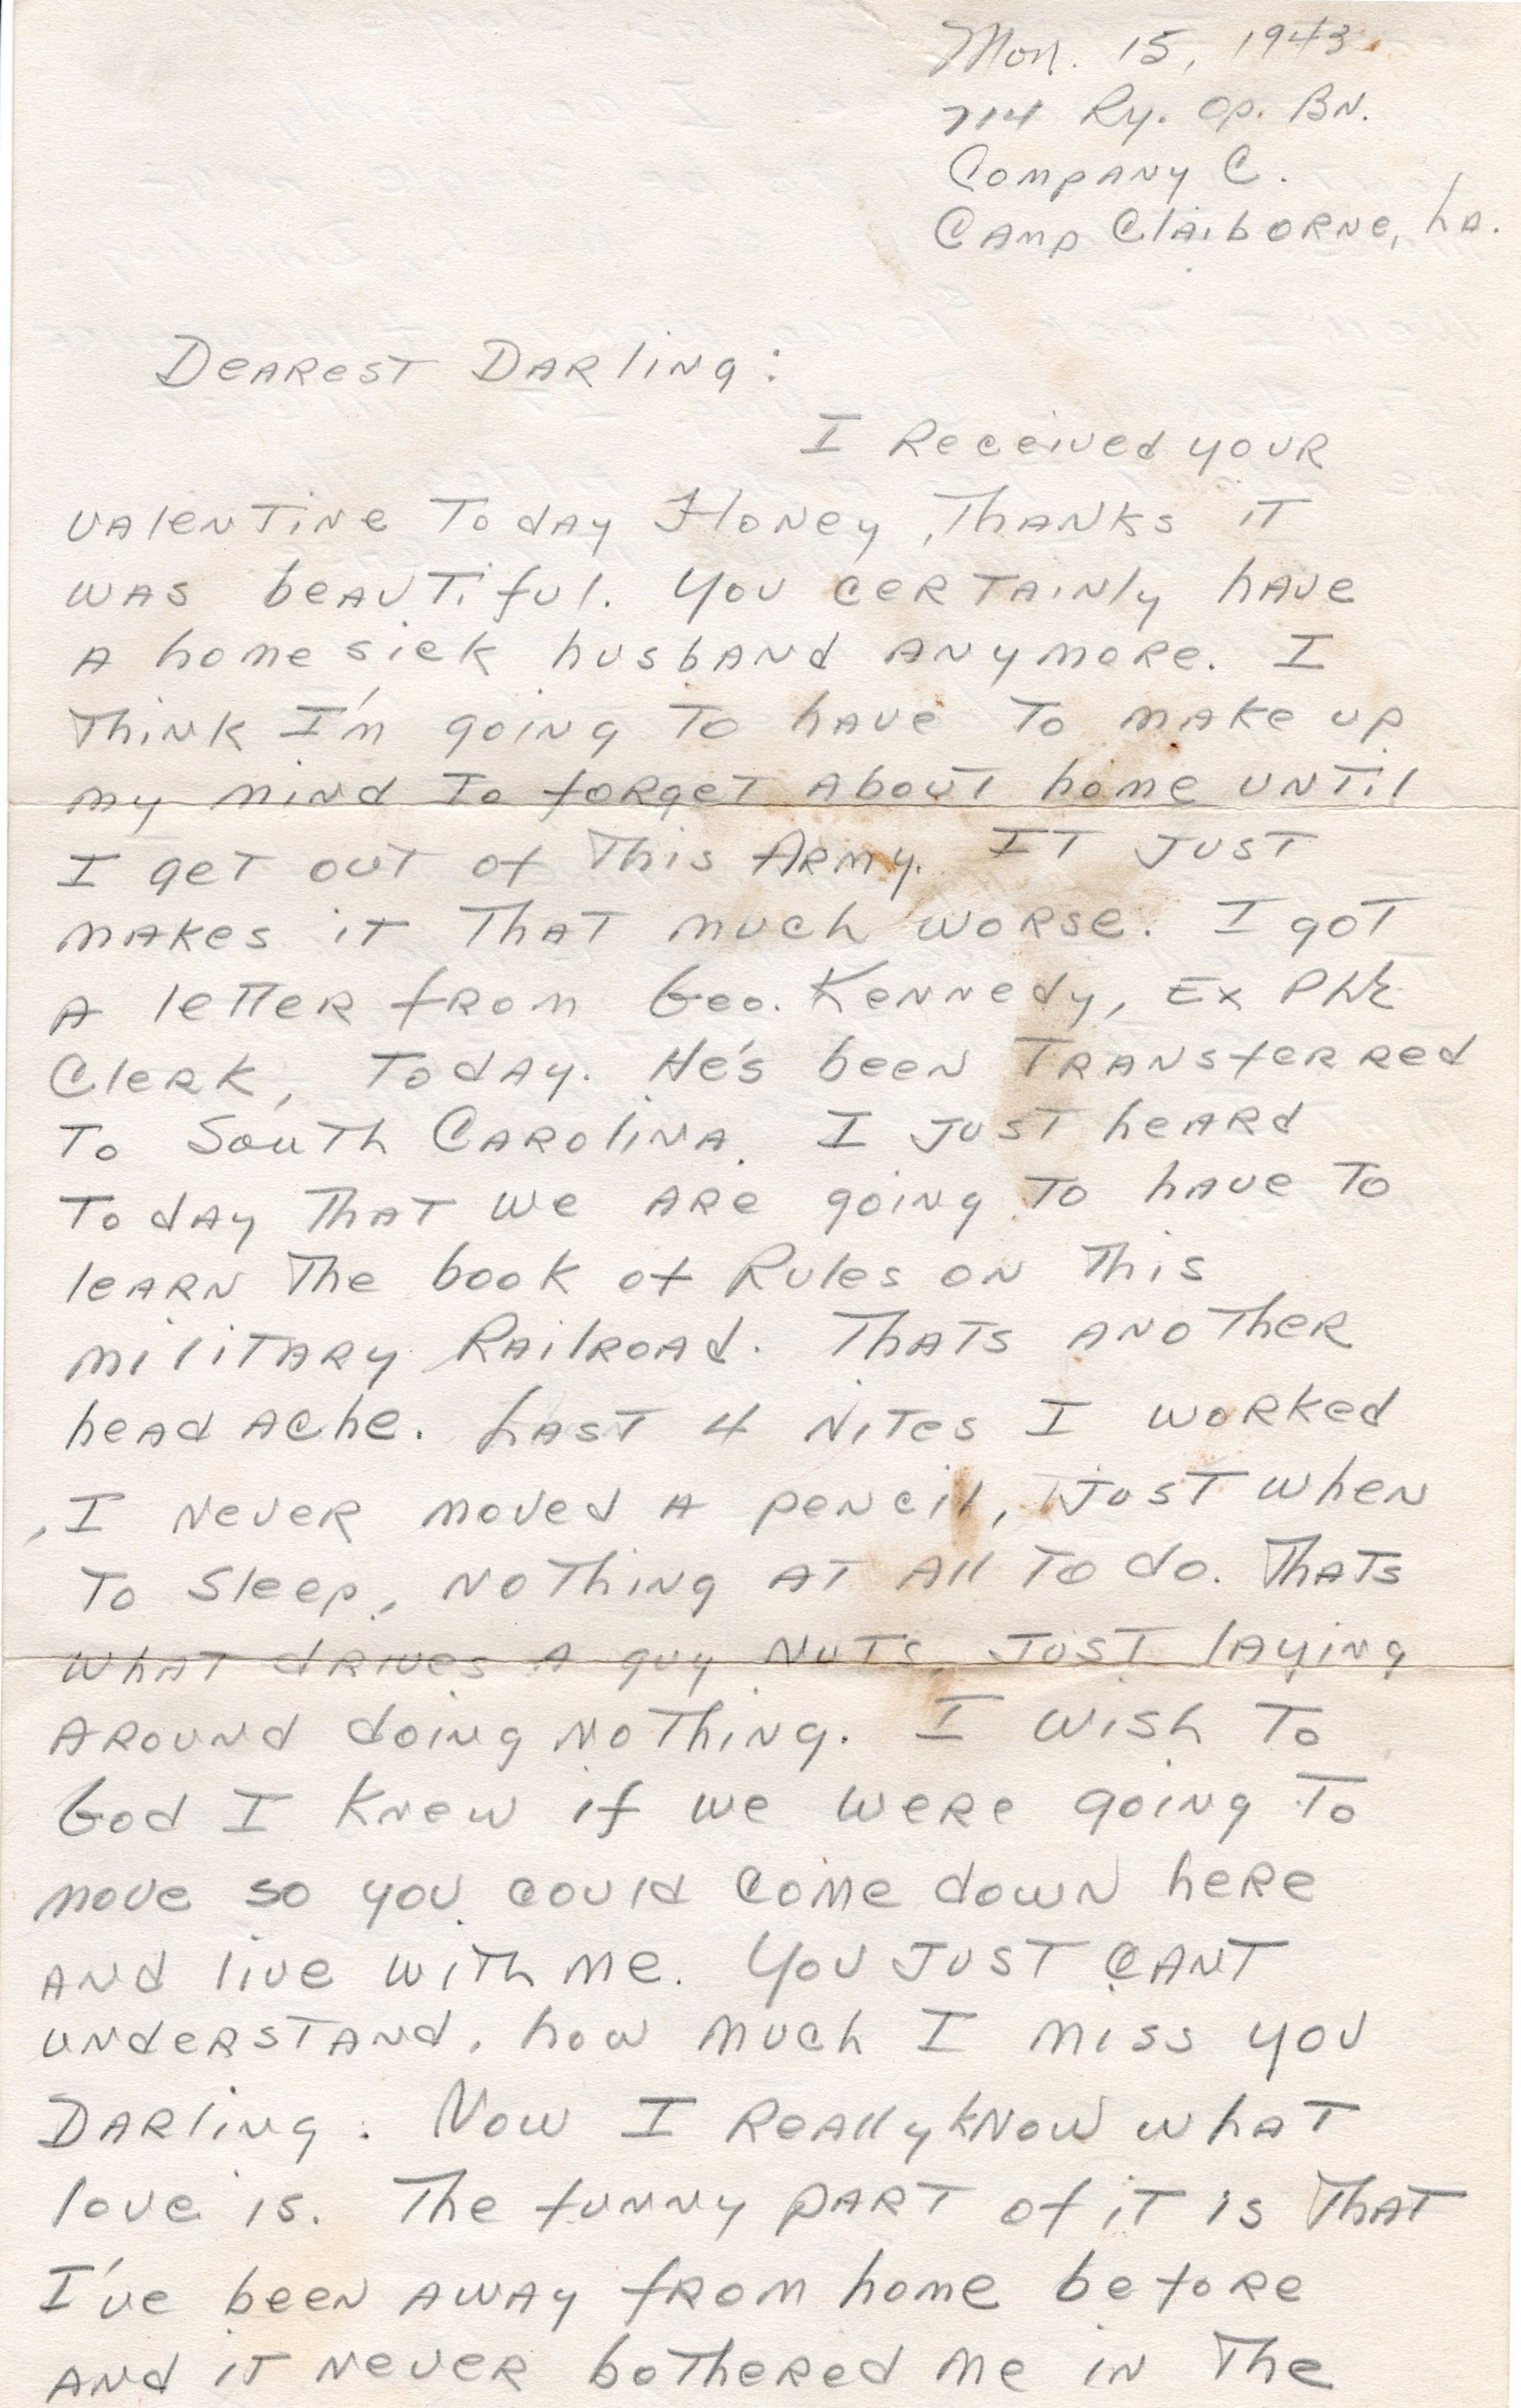 Mon. 15, 1943.
714 Ry. Op. Bn.
Company C.
Camp Claiborne, La.
Dearest Darling:
I Received your
valentine Today Honey, Thanks it
was beautiful. You certainly have
a home sick husband anymore. I
Think I'm going To have To make up
my mind To forget about home until
I get out of This Army. IT just
makes it That much worse. I got
a letter from Geo. Kennedy, Ex
Clerk, Today. He's been Transferred
To South Carolina. I just heard
Today That we are going To have To
learn The book of Rules on This
military Railroad. Thats another
head ache. Last 4 Nites I worked
, I never moved a pencil, Just when
To Sleep, nothing at all To do. Thats
what drives a guy Nuts, Just laying
around doing nothing. I wish To
God I Knew if we were going To
move so you could come down here
and live with me. You just cant
understand, how much I miss you
Darling. Now I Really know what
love is. The funny part of it is That
I've been away from home before
and it never bothered me in The